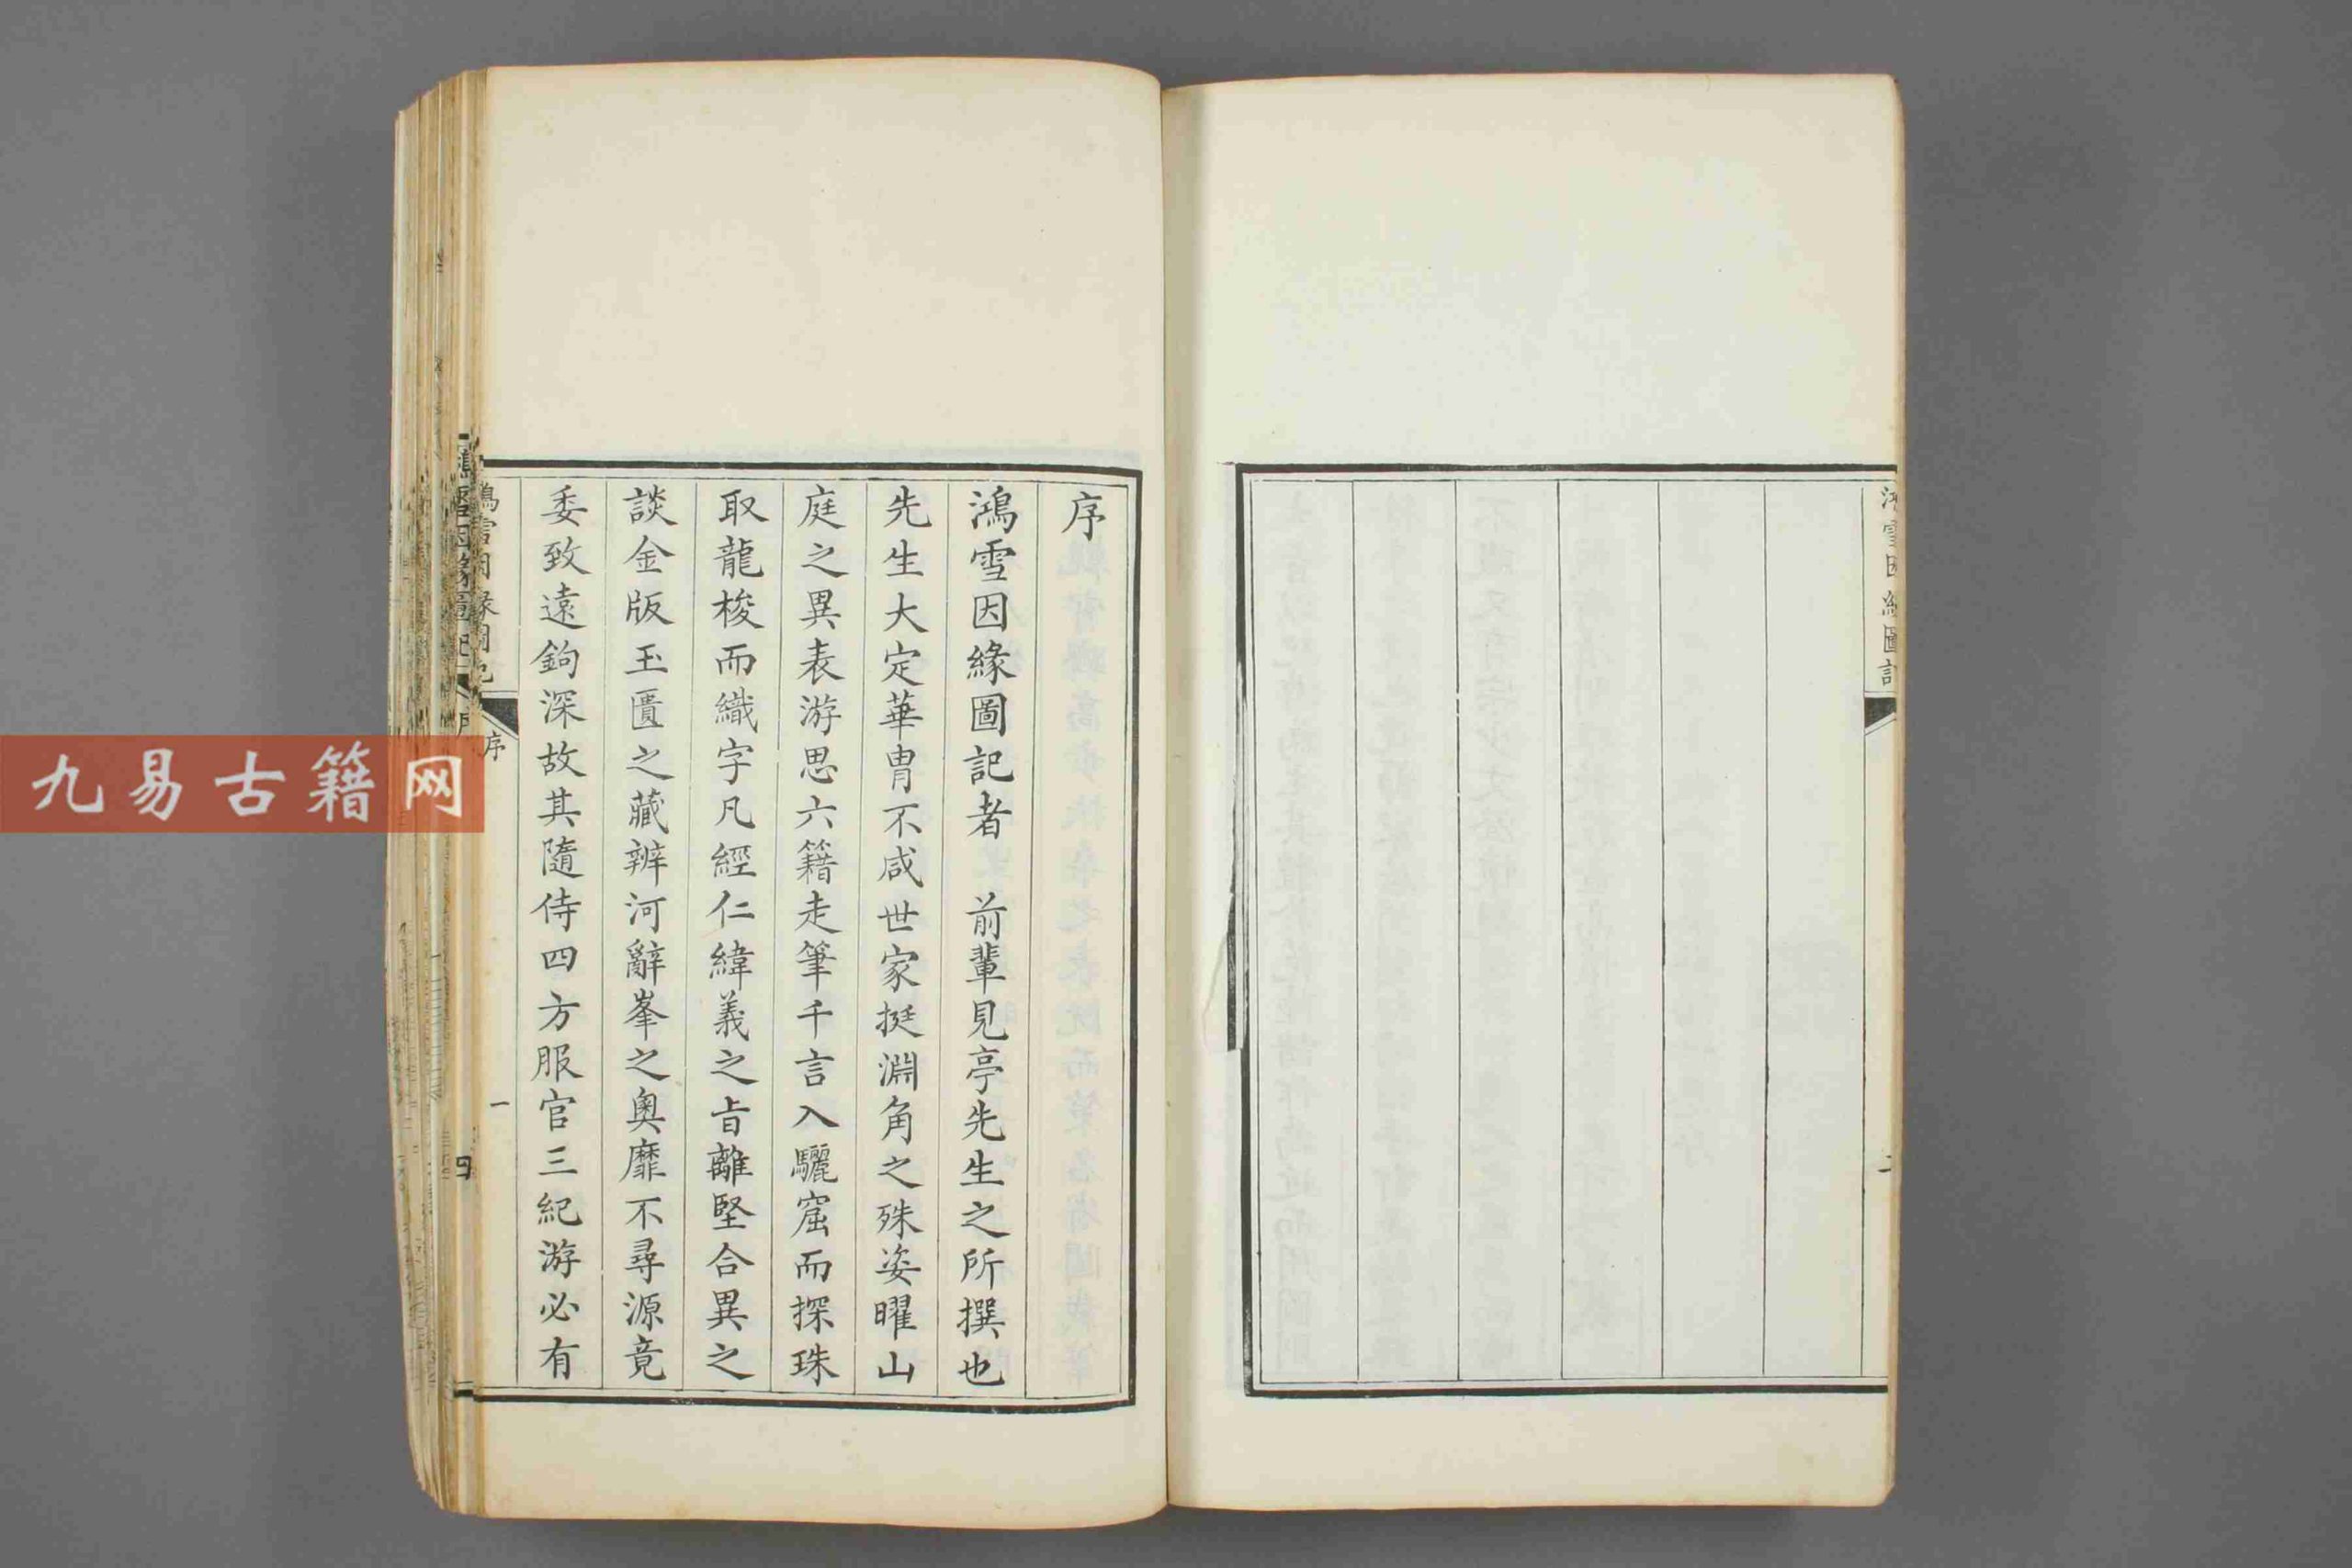 鴻雪因緣圖記
序
鴻雪因緣圖記者　前輩見亭先生之所撰也
先生大定華胄不咸世家挺淵角之殊姿曜山
庭之異表游思六籍走筆千言入驪窟而探珠
取龍梭而織字凡經仁緯義之旨離堅合異之
談金版玉匱之藏辨河辭峯之奧靡不尋源竟
委致遠鉤深故其隨侍四方服官三紀游必有
鴻雪因緣圖記
序
一
九易古籍网